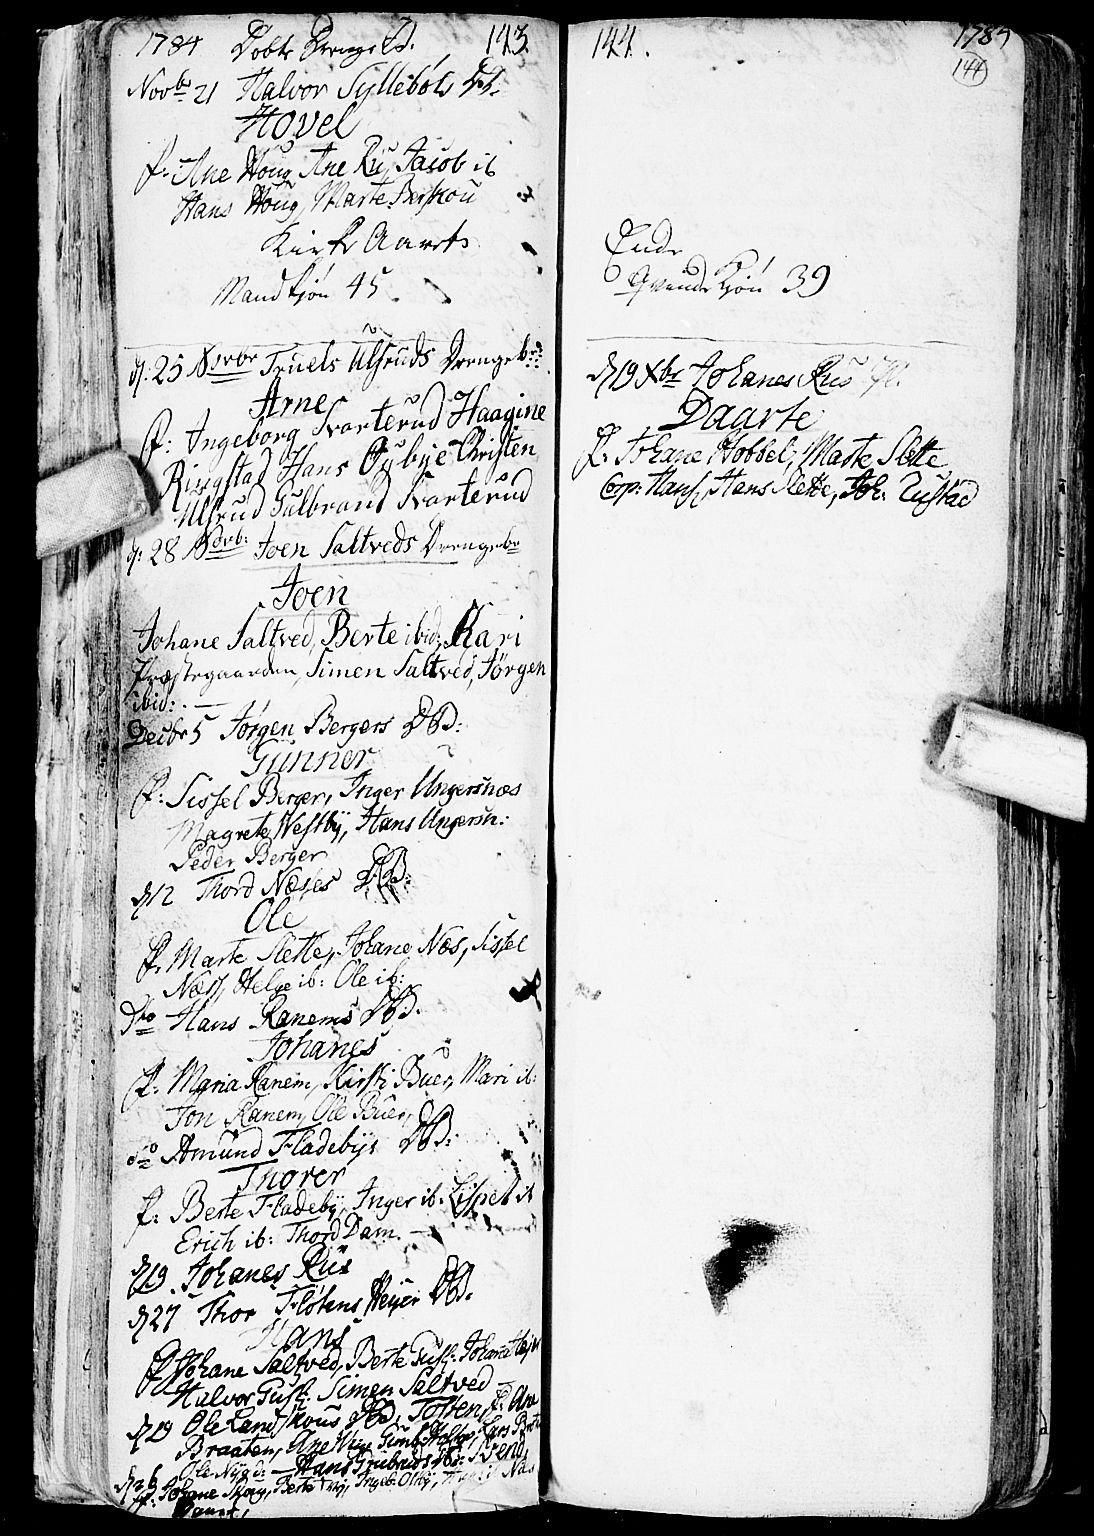 1784 Døbte Drenge B. 143
Novbr 21 Halvor Syllebøls DB.
Hovel
f: Ane Houg, Ane Ru, Jacob ib
Hans Houg, Marte Berskou
Kirke Aarets
Mandkjön 45
d: 25 Novbr Truels Ulsruds Drengebr:
Arne
f: Ingeborg Svarterud Haagine
Ringstad Hans Oybye Christen
Ulsrud Gulbrand Svarterud
d: 28 Novb: Joen Saltveds Drengebr
Joen
Johane Saltved, Berte ibid: Kari
Præstegaarden, Simen Saltved, Jörgen
ibid:.
Decbr 5 Jørgen Bergers DB:
Gunner
f: Sissel Berger, Inger Ungersnæs
Magrete Westby, Hans Ungersn:
Peder Berger
d 12 Thord Næsses DB:
Ole
f. Marte Slette, Johane Næs, Sissel
Næss, Helge ib: Ole ib:
Dto Hans Ranems DB.
Johanes
f: Maria Ranem, Kirsti Buer, Mari ib:
Jon Ranem, Ole Buer,
do Amund Fladebys DB:
Thorer
f: Berte Fladeby, Inger ib. Lisbet ib
Erich ib: Thord Dam.
d 19. Johanes Rus
d 27 Thor Flötens Heyer DB.
Hans
f Johane Saltved, Berte Gusf: Johane
Halvor Gusf: Simen Saltved
d 19 Ole Landskous DB, Tosten, f: Ane
Braaten, Ane Lars
Ole Hans Svend
d 26 f: Johane Berte Ingeb: Næs
144. 1784
144
Ende
Qvinde Kjön 39
d 19 Xbr Johanes Rus Pl.
Daarte
f: Johane Hobbel, Marte Slette
Corp: Hans, Hans Slette, Joh: Rustad